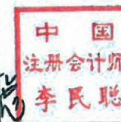 中国
注册会计师
李民聪